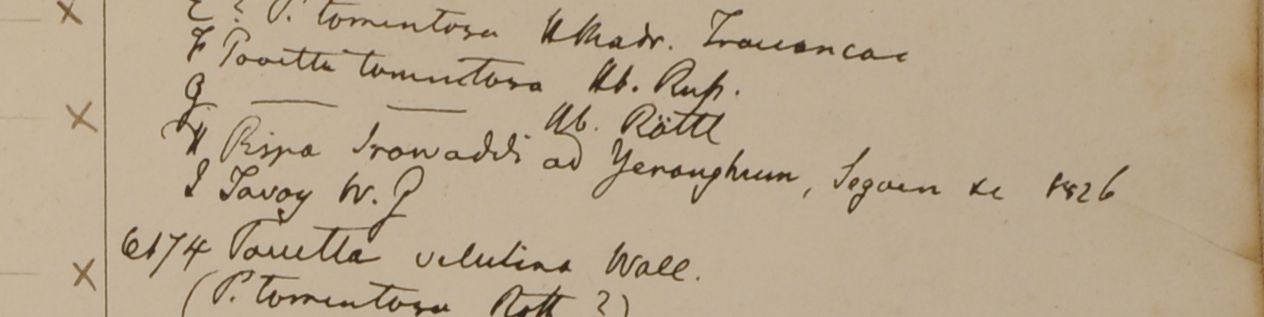 E ? P. tomentosa HMadr. Travancae
F Pavetta tomentosa Hb. Russ.
G —— —— Hb. Röttl
H Ripa Irawaddi ad Yenanghum, Segaen &c 1826
I Tavoy W. G
6174 Pavetta velutina Wall.
(P. tomentosa Roth ?)